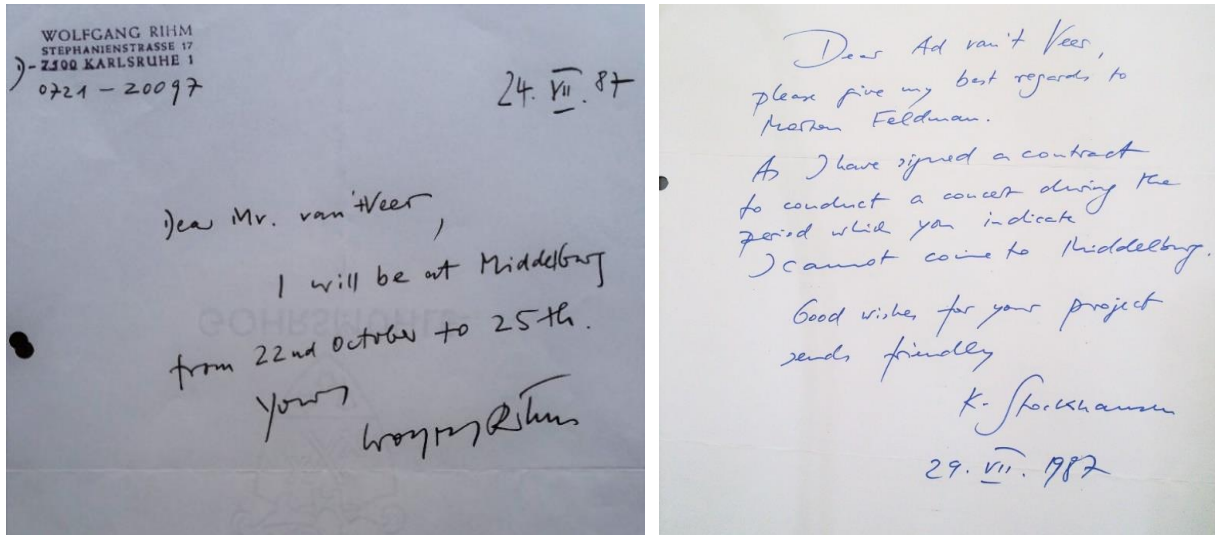 WOLFGANG RIHM
STEPHANIENSTRASSE 17
D-7500 KARLSRUHE 1
0721 - 20097
24. VII. 87
Dear Mr. van 't Veer,
I will be at Middelburg
from 22nd October to 25th.
Yours
Wolfgang Rihm
GOHRSMÜHLE
Dear Ad van't Veer,
please give my best regards to
Morton Feldman.
As I have signed a contract
to conduct a concert during the
period which you indicate
I cannot come to Middelburg.
Good wishes for your project
sends friendly
K. Stockhausen
29. VII. 1987